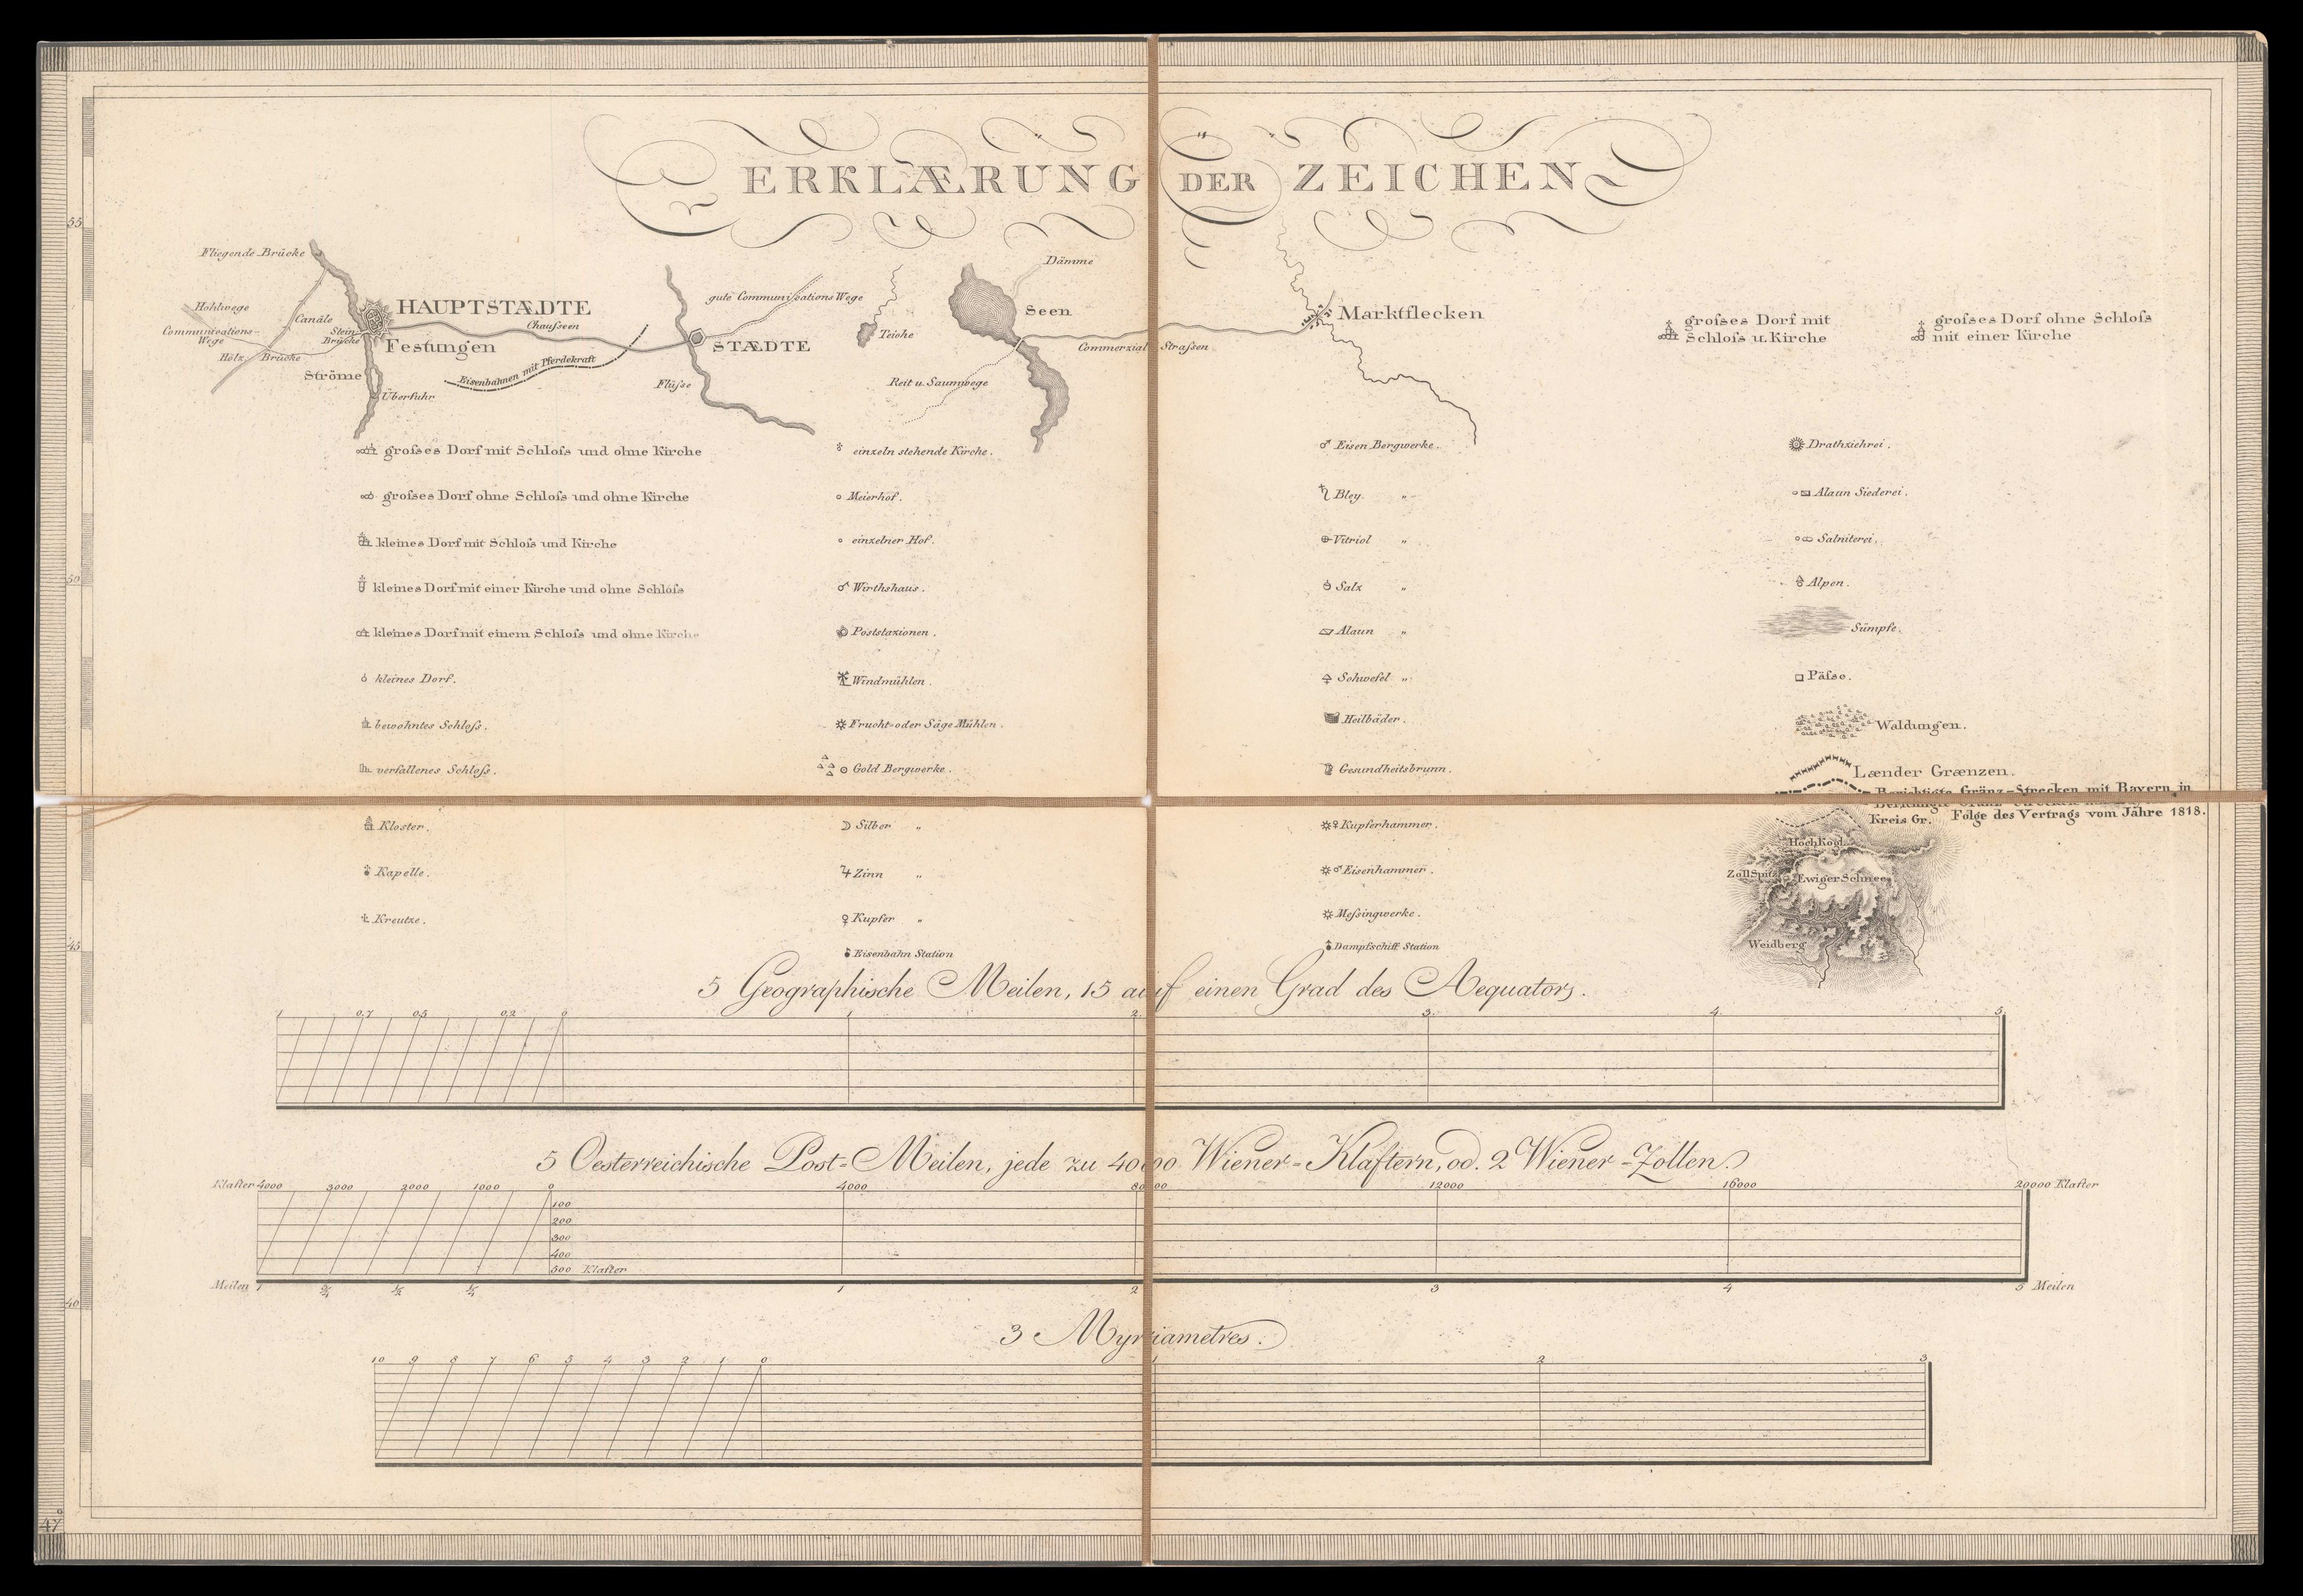 ERKLÆRUNG DER ZEICHEN
Fliegende Brücke
Hohlwege
Communications-
Wege
Canäle
Stein
Brücke
Hölz Brücke
Ströme
Überfuhr
HAUPTSTÆDTE
Chauſseen
Festungen
Eisenbahnen mit Pferdekraft
gute Communications Wege
STÆDTE
Flüſse
Teiche
Dämme
Seen
Commerzial Straſsen
Reit u. Saumwege
Marktflecken
groſses Dorf mit
Schloſs u. Kirche
groſses Dorf ohne Schloſs
mit einer Kirche
groſses Dorf mit Schloſs und ohne Kirche
groſses Dorf ohne Schloſs und ohne Kirche
kleines Dorf mit Schloſs und Kirche
kleines Dorf mit einer Kirche und ohne Schloſs
kleines Dorf mit einem Schloſs und ohne Kirche
kleines Dorf.
bewohntes Schloſs.
verfallenes Schloſs.
Kloster.
Kapelle.
Kreutze.
einzeln stehende Kirche.
Meierhof.
einzelner Hof.
Wirthshaus.
Poststazionen.
Windmühlen.
Frucht-oder Säge Mühlen.
Gold Bergwerke.
Silber „
Zinn „
Kupfer „
Eisenbahn Station
Eisen Bergwerke.
Bley. „
Vitriol „
Salz „
Alaun „
Schwefel „
Heilbäder.
Gesundheitsbrunn.
Kupferhammer.
Eisenhammer.
Meſsingwerke.
Dampfschiff Station
Drathziehrei.
Alaun Siederei.
Salniterei.
Alpen.
Sümpfe.
Päſse.
Waldungen.
Lænder Grænzen.
Berichtigte Gränz-Strecken mit Bayern in
Kreis Gr. Folge des Vertrags vom Jahre 1818.
Hoch Kogl
Zoll Spitz
Ewiger Schnee
Weidberg
5 Geographische Meilen, 15 auf einen Grad des Aequators.
1 0,7 0,5 0,2 0 1 2. 3. 4. 5.
5 Oesterreichische Post-Meilen, jede zu 4000 Wiener-Klaftern, od. 2 Wiener-Zollen.
Klafter 4000 3000 2000 1000 0 4000 8000 12000 16000 20000 Klafter
100
200
300
400
500 Klafter
Meilen 1 3/4 1/2 1/4 1 2 3 4 5 Meilen
3 Myriametres.
10 9 8 7 6 5 4 3 2 1 0 1 2 3
55
50
45
40
47°